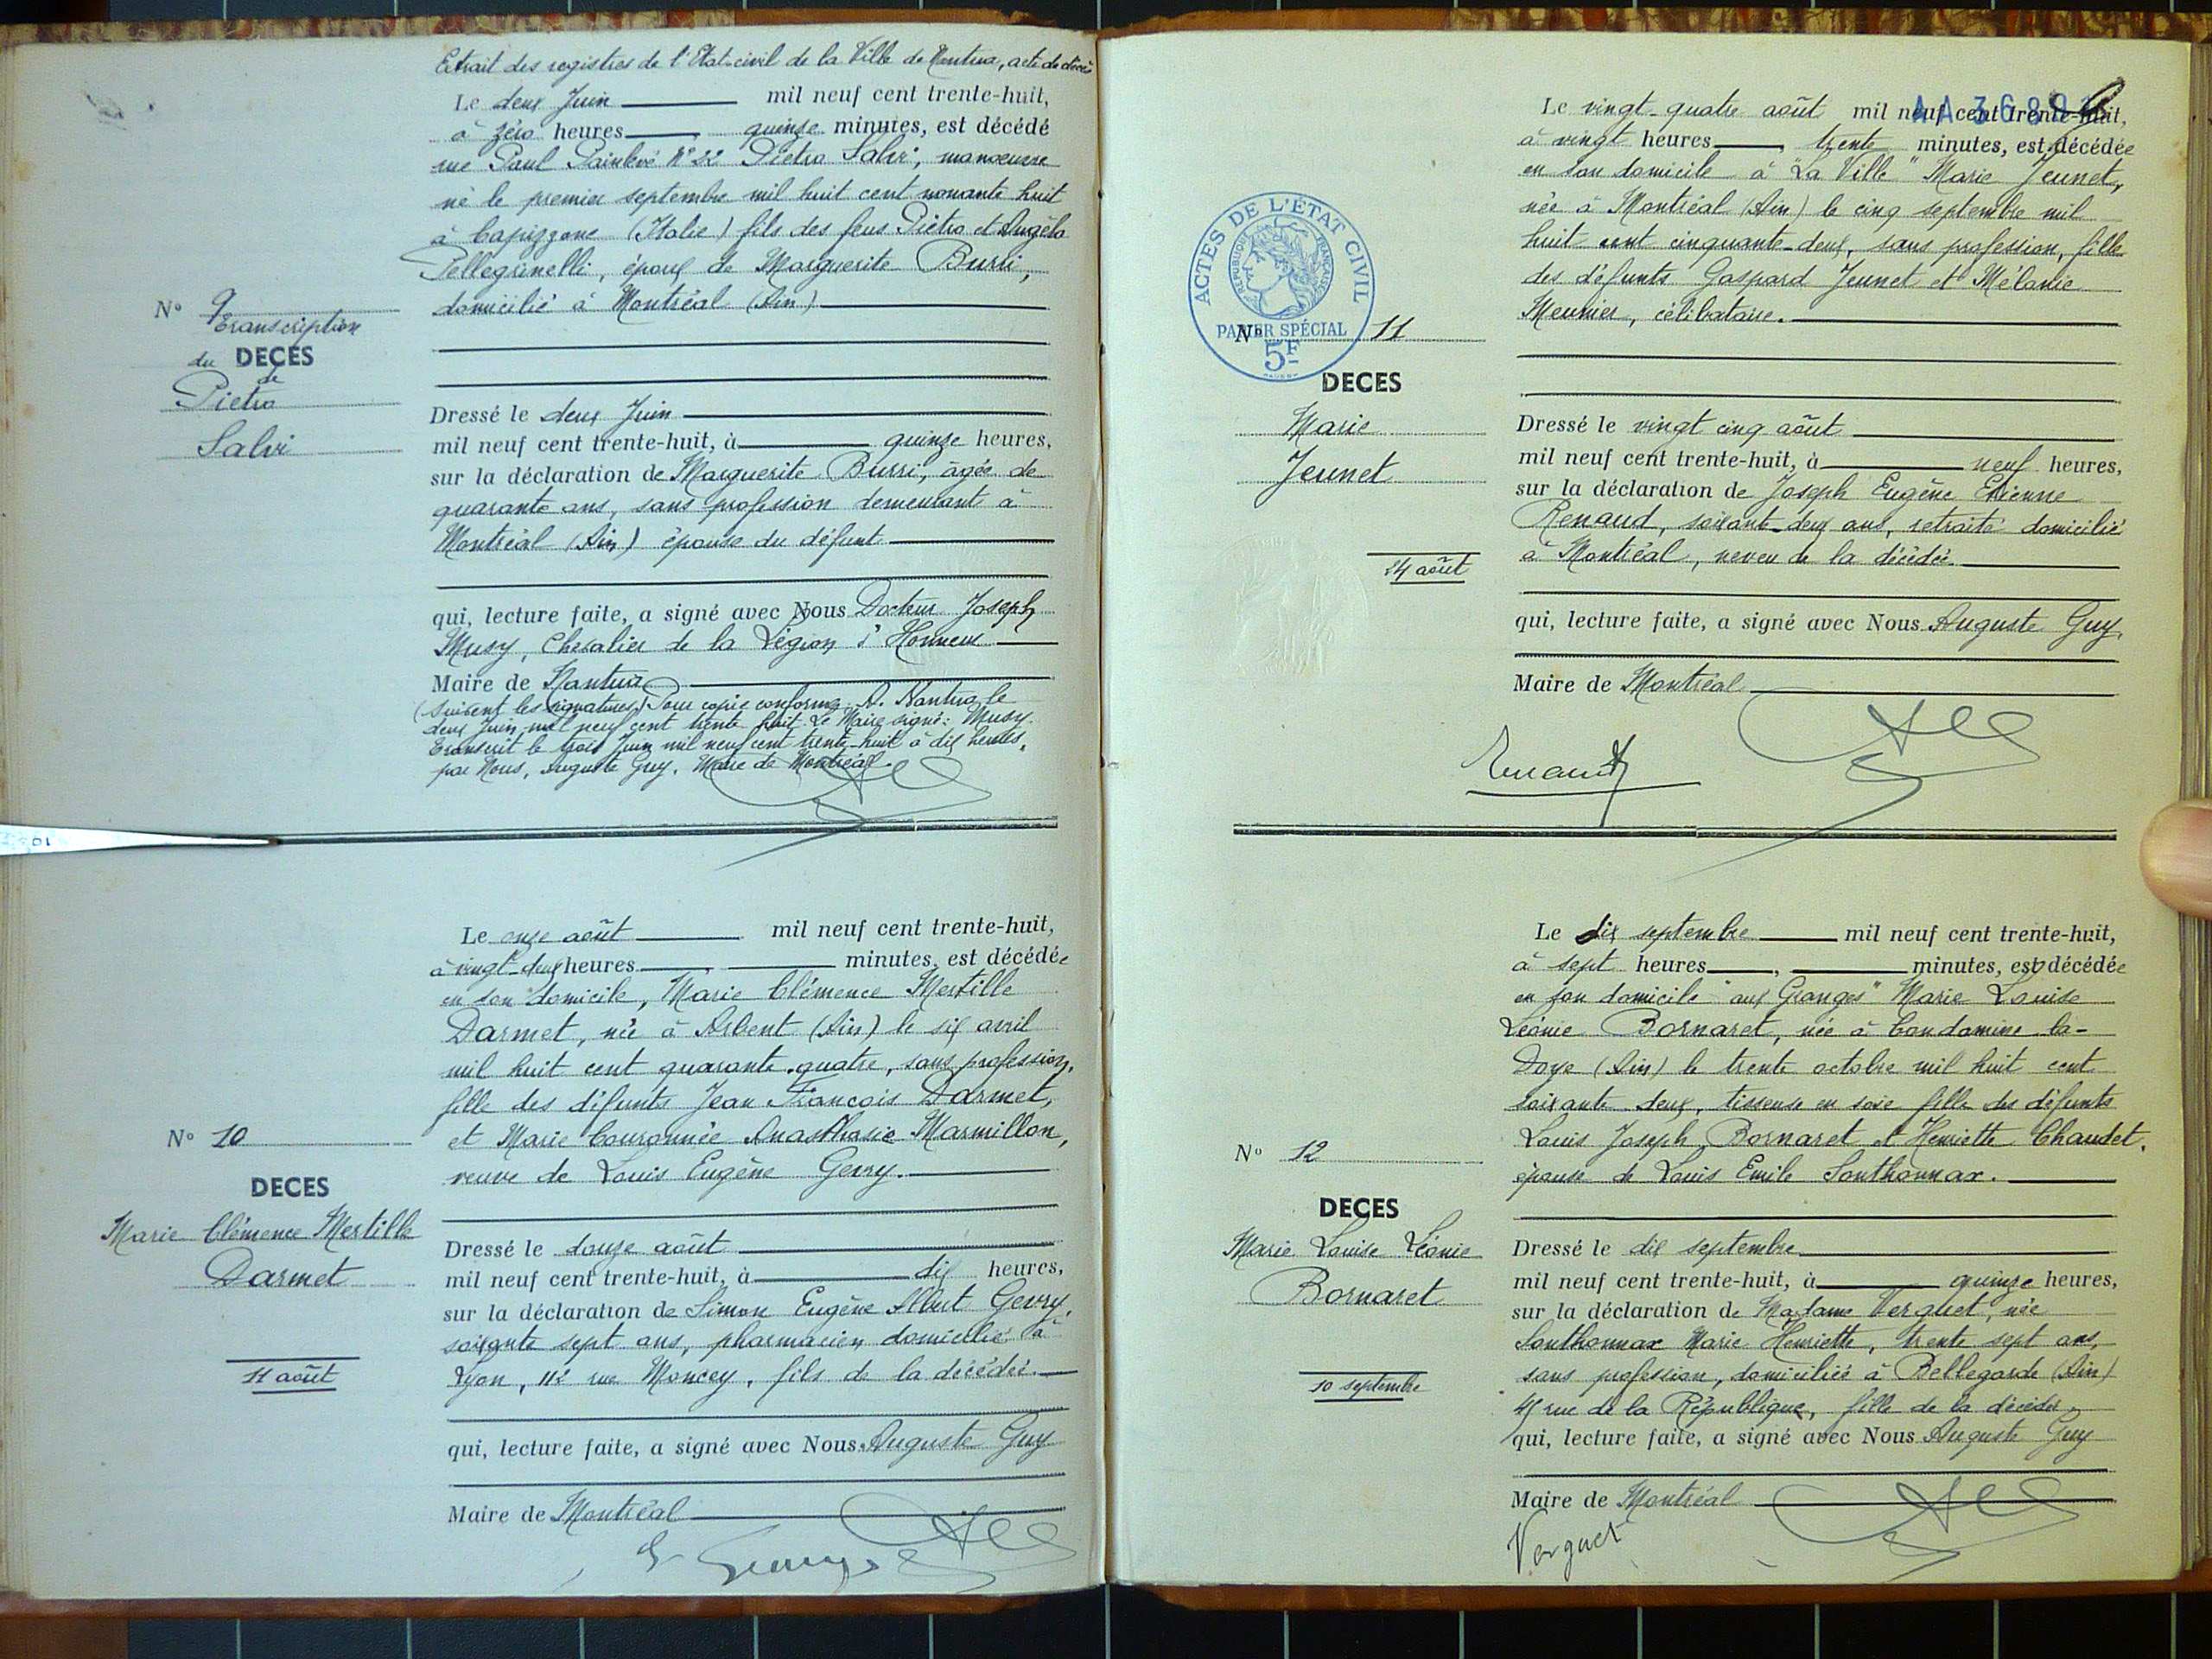 Extrait des registres de l'Etat-civil de la Ville de Nantua, acte de décès
Le deux Juin mil neuf cent trente-huit,
à zéro heures, quinze minutes, est décédé
rue Paul Painlevé N° 22 Pietro Salvi, manœuvre
né le premier septembre mil huit cent nonante huit
à Capizzone (Italie) fils des feus Piétro et Angéla
Pellegrinelli, époux de Marguerite Burri,
domicilié à Montréal (Ain)
N° 9
Transcription
du DECES
de
Pietro
Salvi
Dressé le deux Juin
mil neuf cent trente-huit, à quinze heures,
sur la déclaration de Marguerite Burri, âgée de
quarante ans, sans profession demeurant à
Montréal (Ain) épouse du défunt
qui, lecture faite, a signé avec Nous Docteur Joseph
Musy, Chevalier de la Légion d'Honneur
Maire de Nantua
(Suivent les signatures) Pour copie conforme. A. Nantua le
deux Juin mil neuf cent trente huit. Le Maire signé: Musy.
Transcrit le trois Juin mil neuf cent trente-huit à dix heures,
par Nous, Auguste Guy. Maire de Montréal.
Le onze août mil neuf cent trente-huit,
à vingt-deux heures, minutes, est décédée
en son domicile, Marie Clémence Mertille
Darmet, née à Arbent (Ain) le six avril
mil huit cent quarante-quatre, sans profession,
fille des défunts Jean François Darmet,
et Marie Couronnée Anasthasie Marmillon,
veuve de Louis Eugène Gevry.
N° 10
DECES
Marie Clémence Mertille
Darmet
11 août
Dressé le douze août
mil neuf cent trente-huit, à dix heures,
sur la déclaration de Simon Eugène Albert Gevry,
soixante sept ans, pharmacien domicilié à
Lyon, 112 rue Moncey, fils de la décédée.
qui, lecture faite, a signé avec Nous Auguste Guy
Maire de Montréal
AA 3689
Le vingt-quatre août mil neuf cent trente-huit,
à vingt heures, trente minutes, est décédée
en son domicile à "La Ville" Marie Jeunet,
née à Montréal (Ain) le cinq septembre mil
huit cent cinquante-deux, sans profession, fille
des défunts Gaspard Jeunet et Mélanie
Meunier, célibataire.
ACTES DE L'ÉTAT CIVIL
RÉPUBLIQUE FRANÇAISE
PAPIER SPÉCIAL
5F
N° 11
DECES
Marie
Jeunet
24 août
Dressé le vingt cinq août
mil neuf cent trente-huit, à neuf heures,
sur la déclaration de Joseph Eugène Etienne
Renaud, soixante-deux ans, retraité domicilié
à Montréal, neveu de la décédée.
qui, lecture faite, a signé avec Nous Auguste Guy,
Maire de Montréal
Renaud
Le dix septembre mil neuf cent trente-huit,
à sept heures, minutes, est décédée
en son domicile "aux Granges" Marie Louise
Léonie Bornaret, née à Condamine-la-
Doye (Ain) le trente octobre mil huit cent
soixante-deux, tisseuse en soie fille des défunts
Louis Joseph Bornaret et Henriette Chaudet,
épouse de Louis Emile Sonthonnax.
N° 12
DECES
Marie Louise Léonie
Bornaret
10 septembre
Dressé le dix septembre
mil neuf cent trente-huit, à quinze heures,
sur la déclaration de Madame Verguet, née
Sonthonnax Marie Henriette, trente sept ans,
sans profession, domiciliée à Bellegarde (Ain)
rue de la République, fille de la décédée
qui, lecture faite, a signé avec Nous Auguste Guy
Maire de Montréal
Verguet